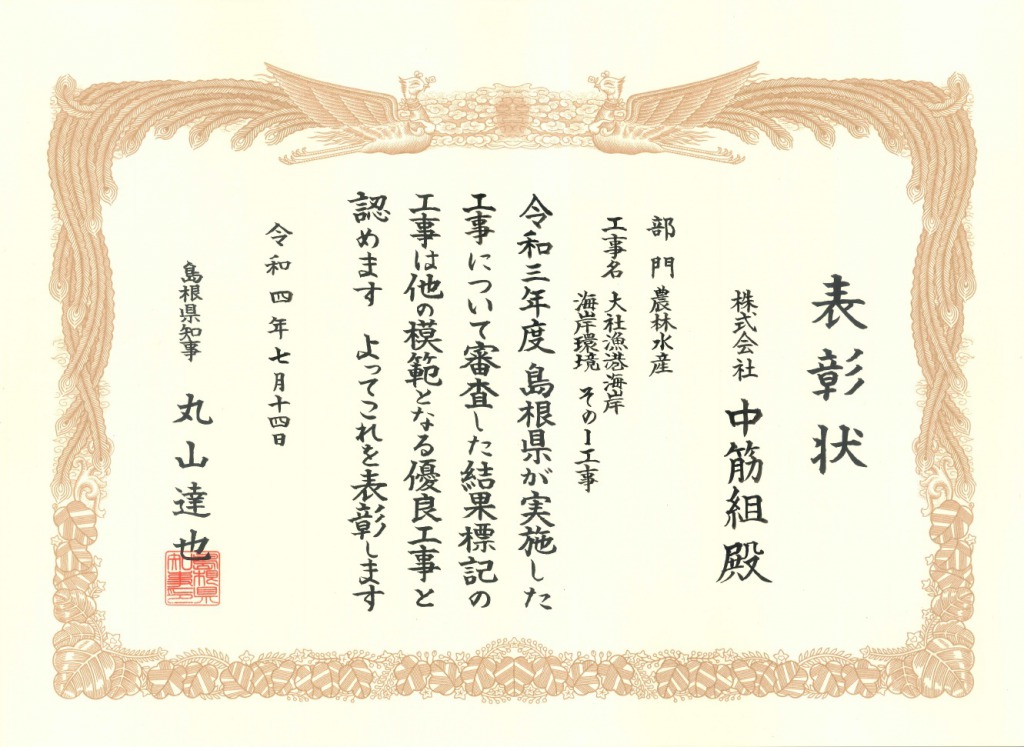 表彰状
株式会社 中筋組 殿
部門 農林水産
工事名 大社漁港海岸
海岸環境 その1工事
令和三年度島根県が実施した
工事について審査した結果標記の
工事は他の模範となる優良工事と
認めます よってこれを表彰します
令和四年七月十四日
島根県知事 丸山達也
島根県
知事之印